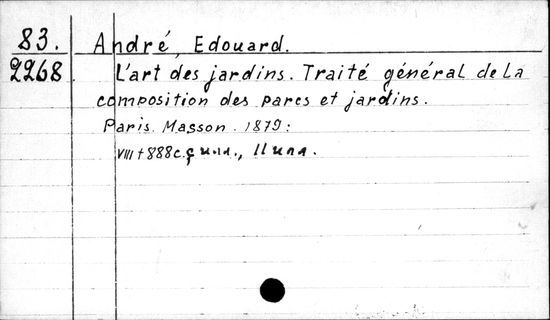 83. André, Edouard.
2268 L'art des jardins. Traité général de la
composition des parcs et jardins.
Paris. Masson. 1879:
VIII+888с. с илл., 11 илл.